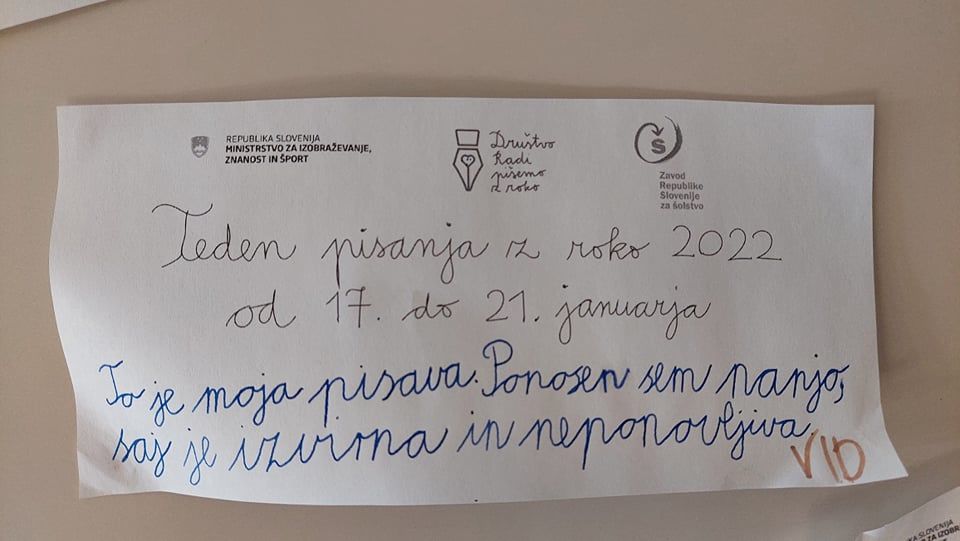 REPUBLIKA SLOVENIJA
MINISTRSTVO ZA IZOBRAŽEVANJE,
ZNANOST IN ŠPORT
Društvo
Radi
pišemo
z roko
Š
Zavod
Republike
Slovenije
za šolstvo
Teden pisanja z roko 2022
od 17. do 21. januarja
To je moja pisava. Ponosen sem nanjo,
saj je izvirna in neponovljiva.
VID
SLOVENIJA